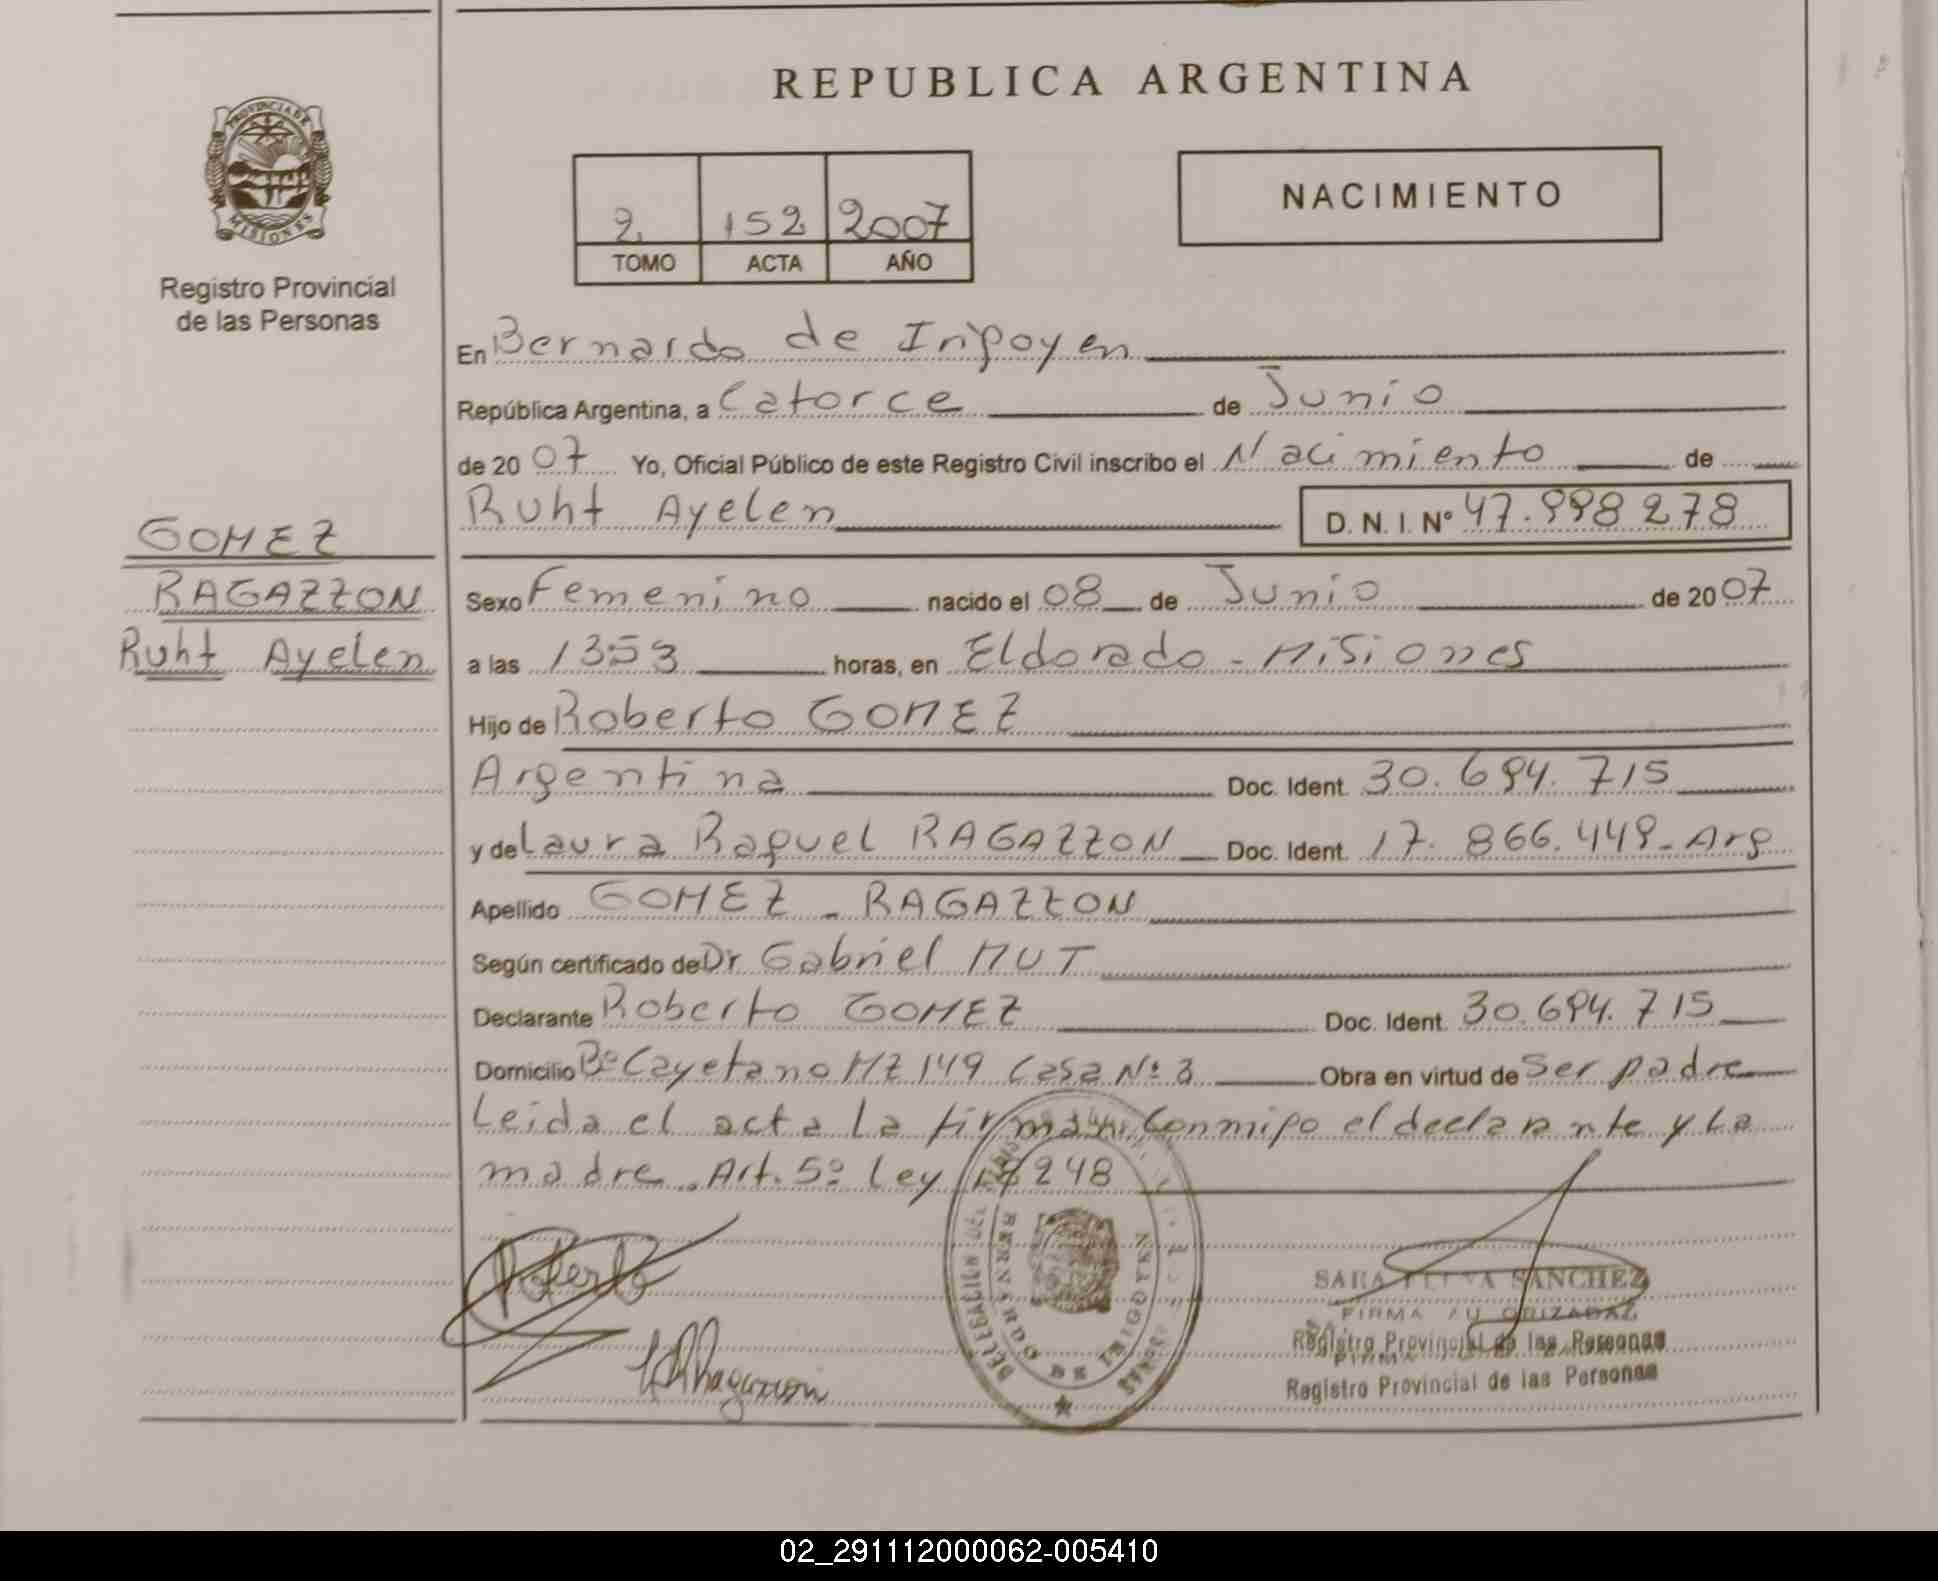 REPUBLICA ARGENTINA
PROVINCIA DE
MISIONES
Registro Provincial
de las Personas
2 152 2007
TOMO ACTA AÑO
NACIMIENTO
En Bernardo de Irigoyen
República Argentina, a Catorce de Junio
de 2007 Yo, Oficial Público de este Registro Civil inscribo el Nacimiento de
Ruht Ayelen D. N. I. Nº 47.998278
GOMEZ
RAGAZZON
Ruht Ayelen
Sexo Femenino nacido el 08 de Junio de 2007
a las 13:53 horas, en Eldorado - Misiones
Hijo de Roberto GOMEZ
Argentina Doc. Ident. 30.694.715
y de Laura Raquel RAGAZZON Doc. Ident. 17.866.449-Arg
Apellido GOMEZ - RAGAZZON
Según certificado de Dr Gabriel MUT
Declarante Roberto GOMEZ Doc. Ident. 30.694.715
Domicilio Bº Cayetano MZ 149 Casa Nº 3 Obra en virtud de Ser padre
Leida el acta la firman conmigo el declarante y la
madre. Art. 5º Ley 18248
Roberto
Ragazzon
BERNARDO DE IRIGOYEN
SARA SANCHEZ
FIRMA AUTORIZADA
Registro Provincial de las Personas
Registro Provincial de las Personas
02_291112000062-005410